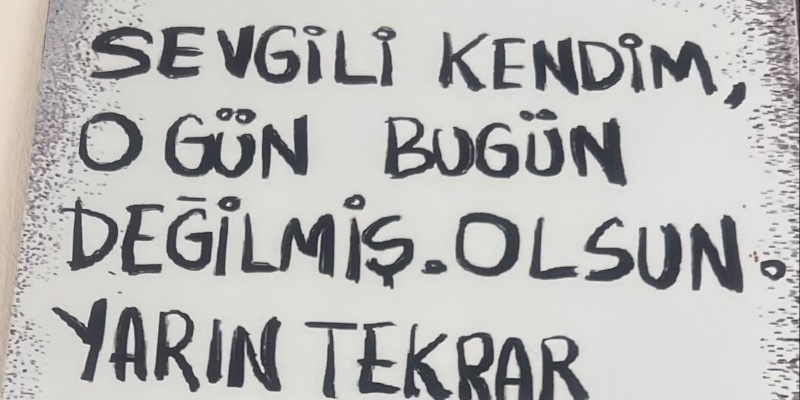 SEVGİLİ KENDİM,
O GÜN BUGÜN
DEĞİLMİŞ. OLSUN.
YARIN TEKRAR